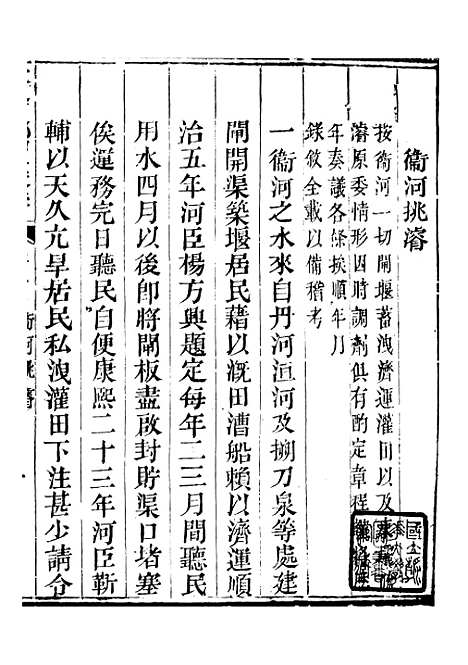 衞河挑濬
按衞河一切閘堰蓄洩濟運灌田以及
濬原委情形因時調劑俱有酌定章程
年奏議各條挨順年月
錄敘全載以備稽考
一衞河之水來自丹河洹河及搠刀泉等處建
閘開渠築堰居民藉以漑田漕船賴以濟運順
治五年河臣楊方興題定每年二三月間聽民
用水四月以後卽將閘板盡啟封貯渠口堵塞
俟運務完日聽民自便康熙二十三年河臣靳
輔以天久亢旱居民私洩灌田下注甚少請令
衞河挑濬